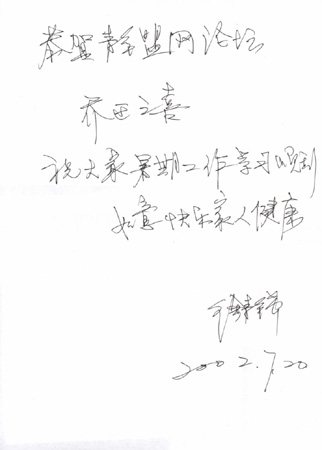 恭贺青年盟网论坛
乔迁之喜
祝大家暑期工作学习顺利
如意快乐家人健康
2002.7.20